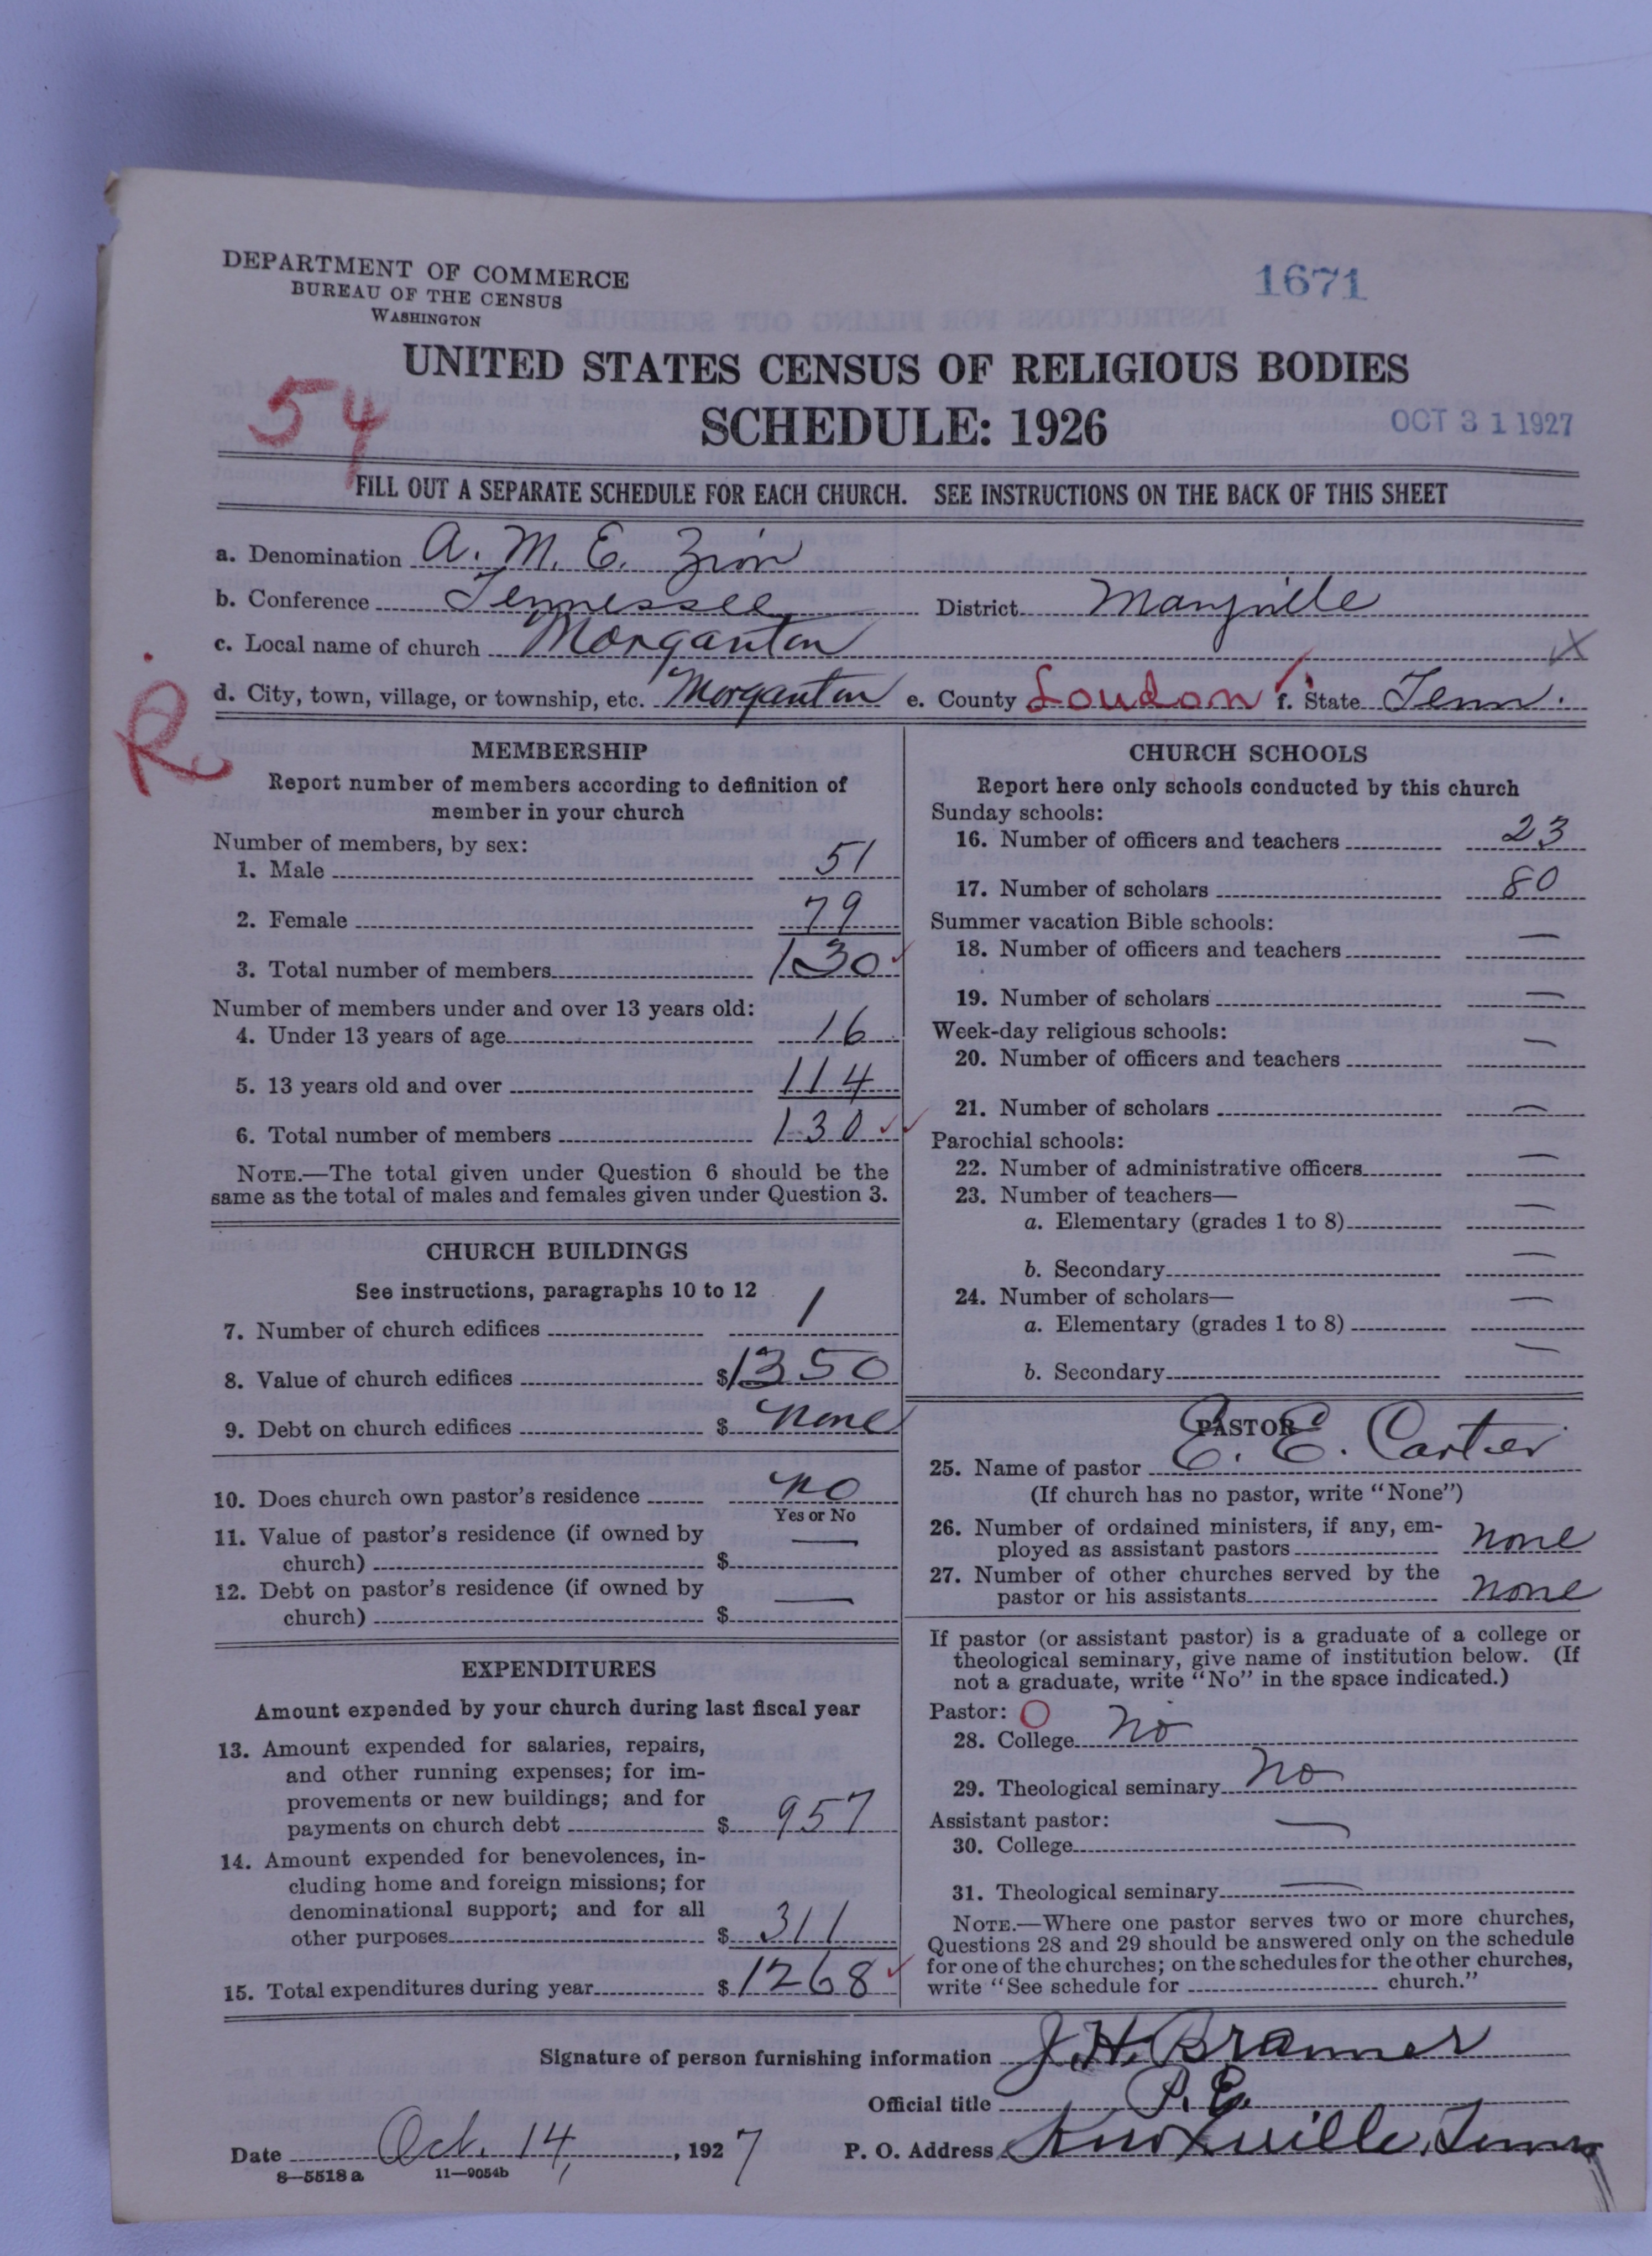 DEPARTMENT OF COMMERCE
BUREAU OF THE CENSUS
WASHINGTON
1671
UNITED STATES CENSUS OF RELIGIOUS BODIES
54
SCHEDULE: 1926
OCT 31 1927
FILL OUT A SEPARATE SCHEDULE FOR EACH CHURCH. SEE INSTRUCTIONS ON THE BACK OF THIS SHEET
a. Denomination A. M. E. Zion
b. Conference Tennessee District Maryville
c. Local name of church Morganton X
d. City, town, village, or township, etc. Morganton e. County Loudon f. State Tenn.
R
MEMBERSHIP
Report number of members according to definition of
member in your church
Number of members, by sex:
1. Male 51
2. Female 79
3. Total number of members 130
Number of members under and over 13 years old:
4. Under 13 years of age 16
5. 13 years old and over 114
6. Total number of members 130
NOTE.—The total given under Question 6 should be the
same as the total of males and females given under Question 3.
CHURCH BUILDINGS
See instructions, paragraphs 10 to 12
7. Number of church edifices 1
8. Value of church edifices $1350
9. Debt on church edifices $ none
10. Does church own pastor's residence no
Yes or No
11. Value of pastor's residence (if owned by
church) $ —
12. Debt on pastor's residence (if owned by
church) $ —
EXPENDITURES
Amount expended by your church during last fiscal year
13. Amount expended for salaries, repairs,
and other running expenses; for im-
provements or new buildings; and for
payments on church debt $ 957
14. Amount expended for benevolences, in-
cluding home and foreign missions; for
denominational support; and for all
other purposes $ 311
15. Total expenditures during year $ 1268
CHURCH SCHOOLS
Report here only schools conducted by this church
Sunday schools:
16. Number of officers and teachers 23
17. Number of scholars 80
Summer vacation Bible schools:
18. Number of officers and teachers —
19. Number of scholars —
Week-day religious schools:
20. Number of officers and teachers —
21. Number of scholars —
Parochial schools:
22. Number of administrative officers —
23. Number of teachers—
a. Elementary (grades 1 to 8) —
b. Secondary —
24. Number of scholars—
a. Elementary (grades 1 to 8) —
b. Secondary —
PASTOR
25. Name of pastor E. E. Carter
(If church has no pastor, write "None")
26. Number of ordained ministers, if any, em-
ployed as assistant pastors none
27. Number of other churches served by the
pastor or his assistants none
If pastor (or assistant pastor) is a graduate of a college or
theological seminary, give name of institution below. (If
not a graduate, write "No" in the space indicated.)
Pastor: O
28. College no
29. Theological seminary no
Assistant pastor:
30. College —
31. Theological seminary —
NOTE.—Where one pastor serves two or more churches,
Questions 28 and 29 should be answered only on the schedule
for one of the churches; on the schedules for the other churches,
write "See schedule for church."
Signature of person furnishing information J. H. Branner
Official title P. E.
Date Oct. 14, 1927 P. O. Address Knoxville, Tenn
8—5518 a 11—9054b